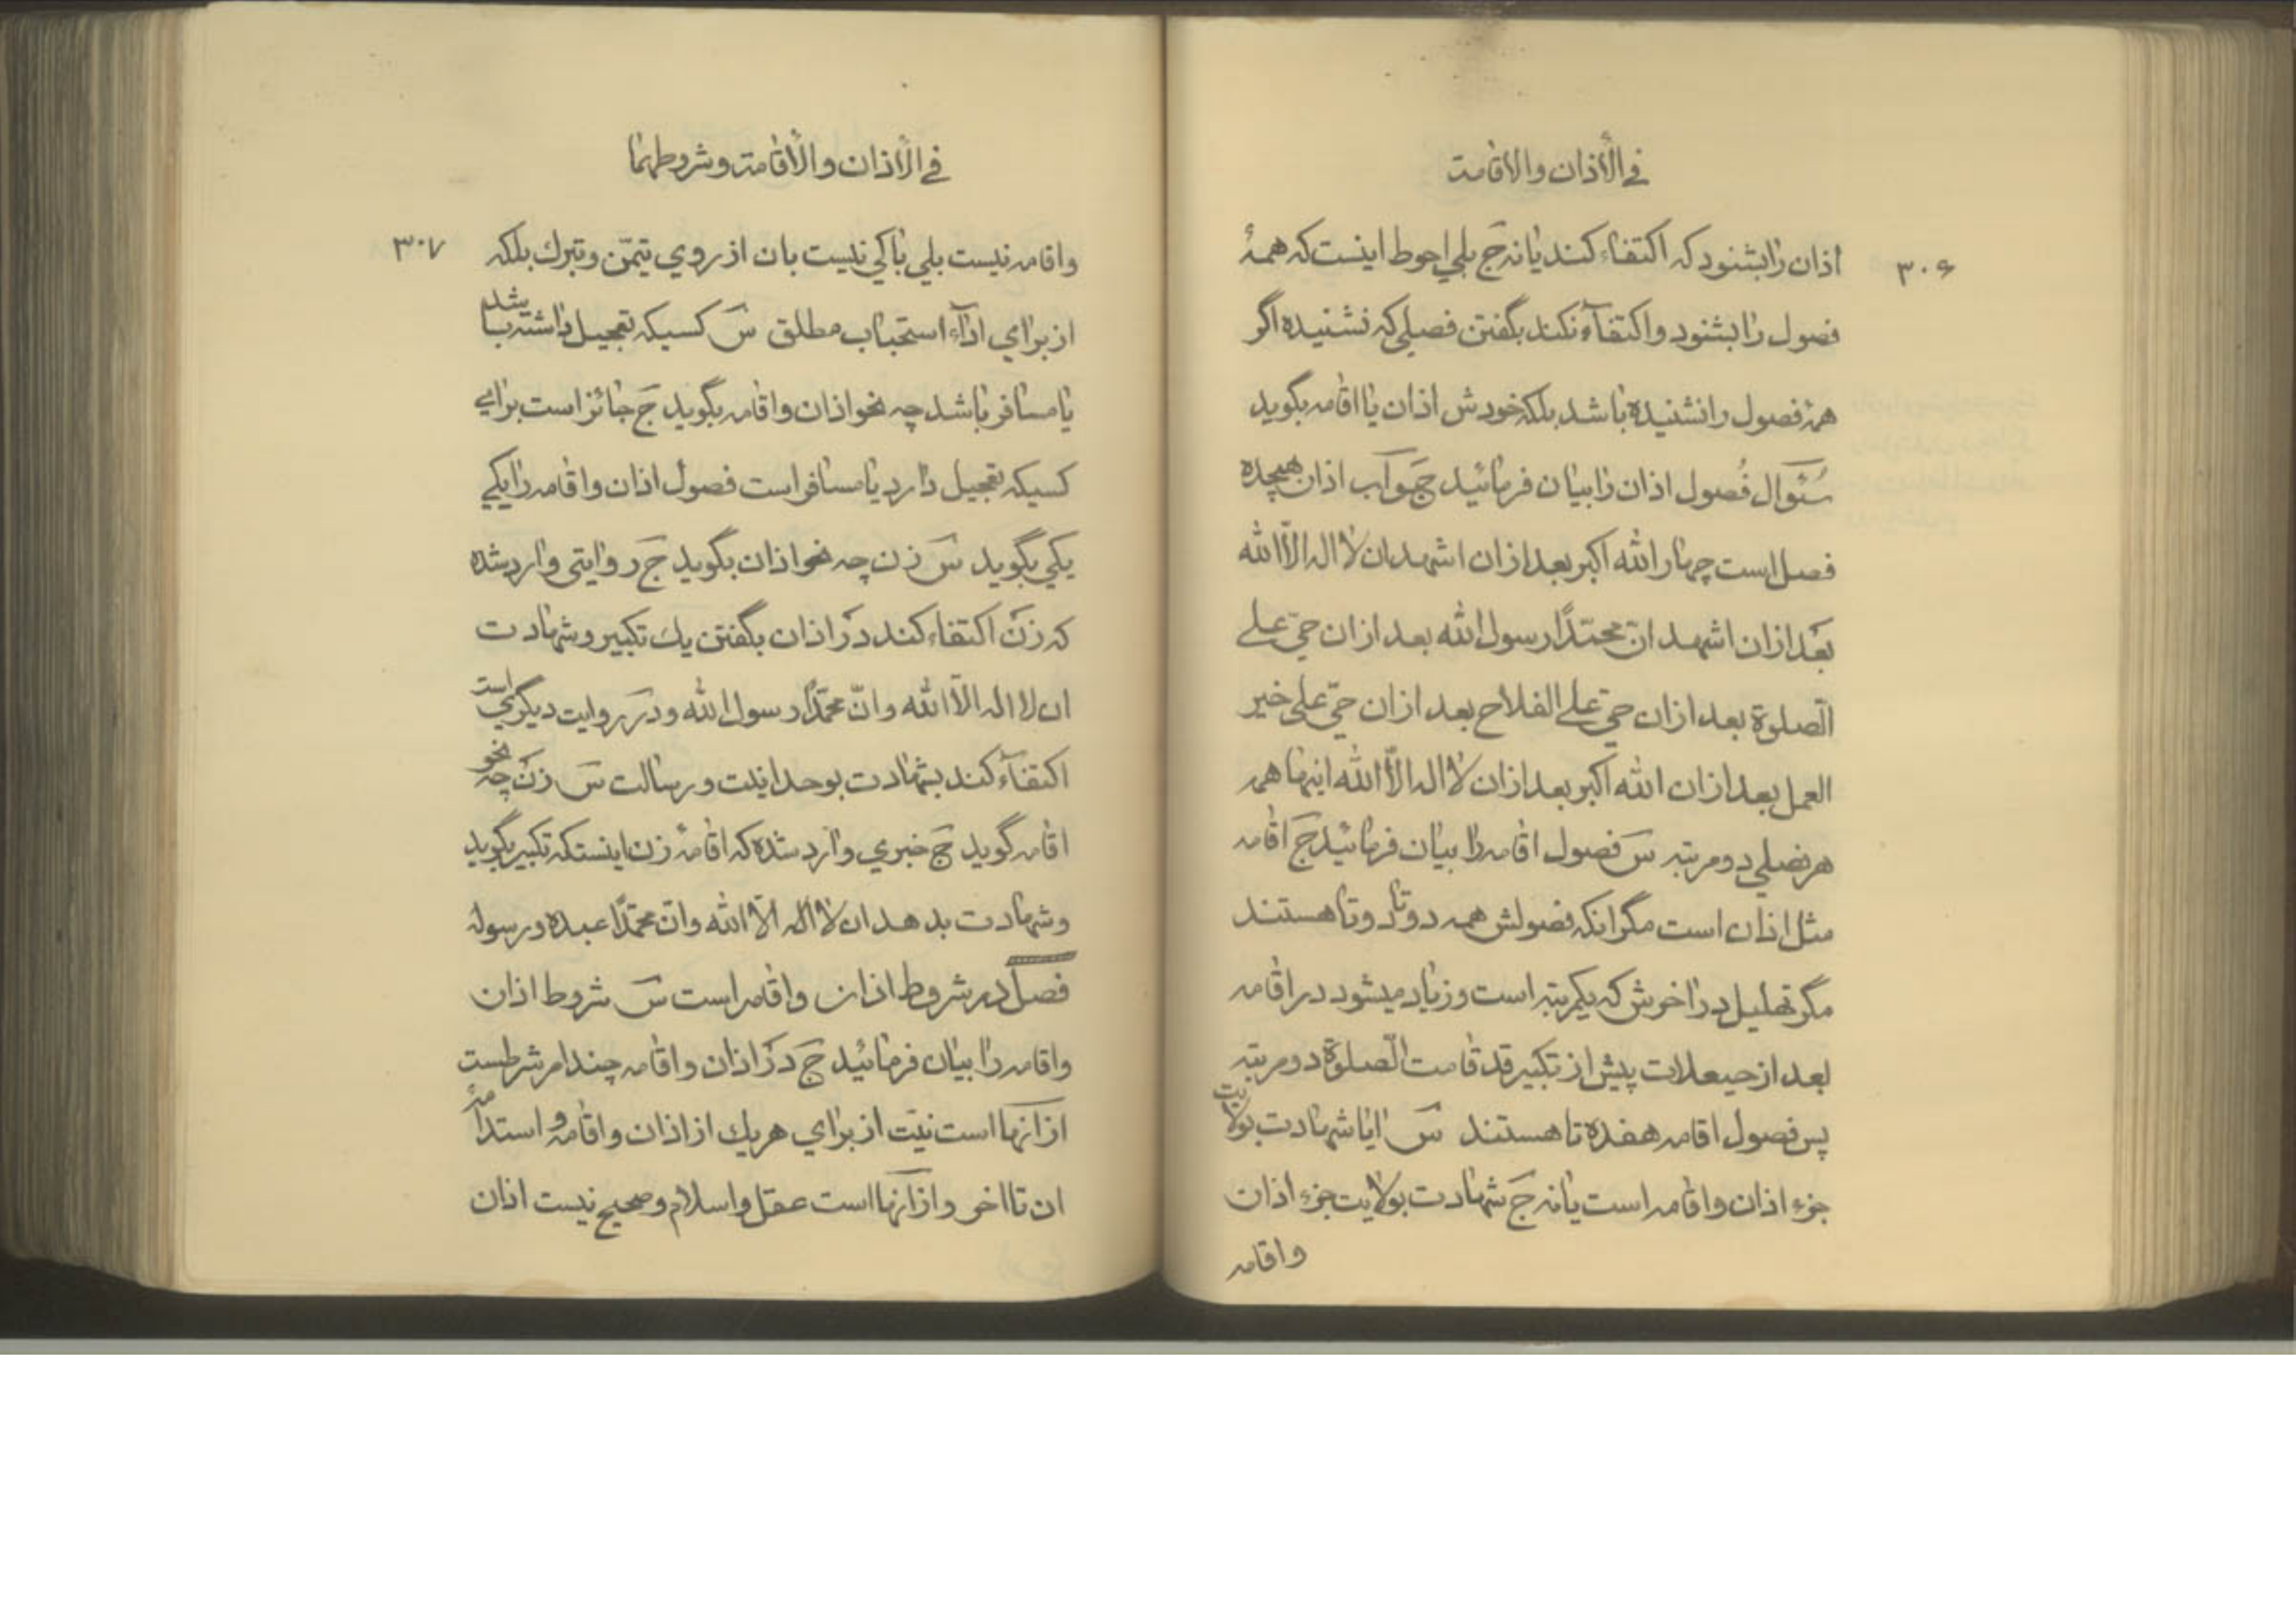 في الأذان والاقامت
۳۰۶
اذان را بشنود که اکتفاء کند یا نه جَ بلي احوط اینست که همهٔ
فصول را بشنود و اکتفآء نکند بگفتن فصلی که نشنیده اگر
همهٔ فصول را نشنیده باشد بلکه خودش اذان یا اقامه بگوید
سُئوال فُصول اذان را بیان فرمائید جَوآب اذان هیجده
فصل است چهار الله اکبر بعد ازان اشهد ان لا اله الّا الله
بعَد ازان اشهد انّ محمّدًا رسول الله بعد ازان حيّ علی
الصّلوة بعد ازان حيّ علی الفلاح بعد ازان حيّ علی خیر
العمل بعد ازان الله اکبر بعد ازان لا اله الّا الله اینها همه
هر فصلي دو مرتبه سَ فصول اقامه را بیان فرمائید جَ اقامه
مثل اذان است مگر انکه فصولش همه دوتا دوتا هستند
مگر تهلیل در اخرش که یکمرتبه است و زیاد میشود در اقامه
بعد از حیعلات پیش از تکبیر قد قامت الصّلوة دو مرتبه
پس فصول اقامه هفده تا هستند سَ ایا شهادت بولایت
جزء اذان و اقامه است یا نه جَ شهادت بولایت جزء اذان
واقامه
في الأذان والأقامت وشروطهما
۳۰۷
واقامه نیست بلي باکي نیست بان از روي تیمّن و تبرك بلکه
از براي ادآء استحباب مطلق سَ کسیکه تعجیل داشته باشد
یا مسافر باشد چه نحو اذان و اقامه بگوید جَ جائز است براي
کسیکه تعجیل دارد یا مسافر است فصول اذان و اقامه را یکي
یکي بگوید سَ زن چه نحو اذان بگوید جَ روایتی وارد شده
که زن اکتفاء کند در اذان بگفتن یك تکبیر و شهادت
ان لا اله الّا الله و انّ محمّدًا رسول الله و در روایت دیگري است
اکتفآء کند بشهادت بوحدانیت و رسالت سَ زن چه نحو
اقامه گوید جَ خبري وارد شده که اقامهٔ زن اینستکه تکبیر بگوید
وشهادت بدهد ان لا اله الّا الله وانّ محمّدًا عبده ورسوله
فصل در شروط اذان واقامه است سَ شروط اذان
واقامه را بیان فرمائید جَ در اذان واقامه چند امر شرطست
از انها است نیّت از براي هر یك از اذان واقامه و استدامهٔ
ان تا اخر و از آنها است عقل و اسلام و صحیح نیست اذان